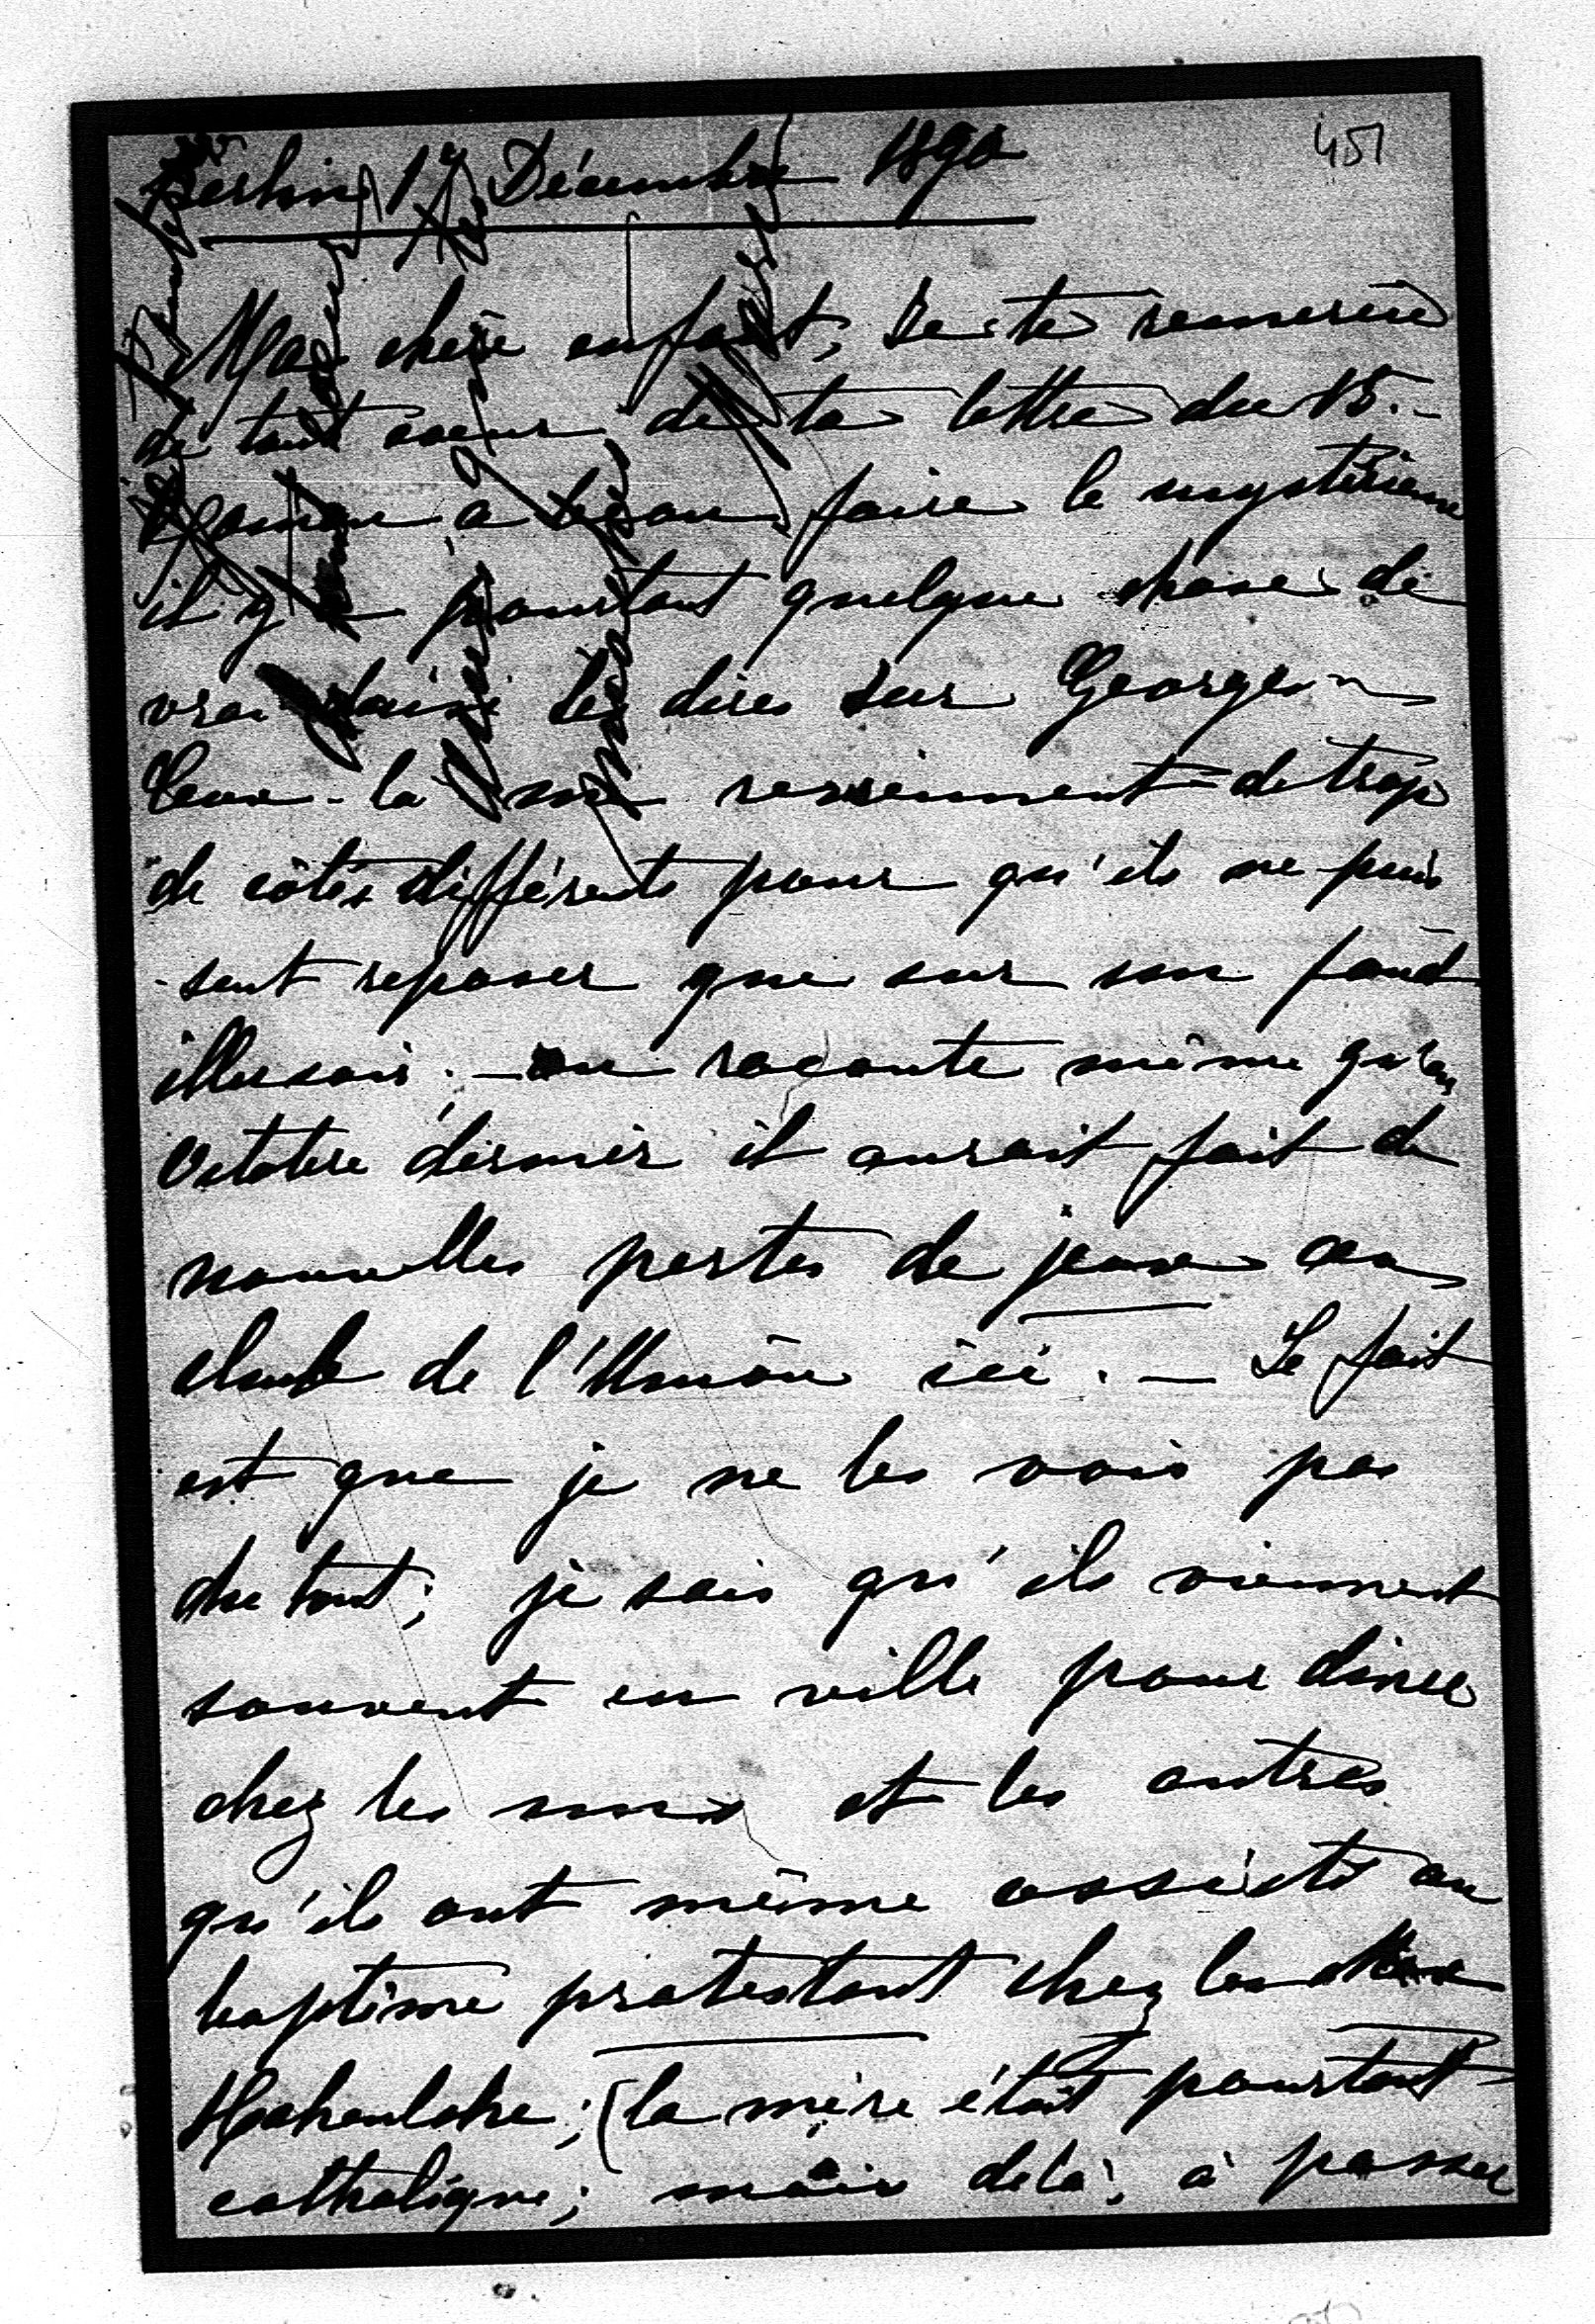 451
Berlin 17 Décembre 1890
Ma chère enfant, Je te remercie
de tout coeur de ta lettre du 15.-
a beau faire le mystérieux
il y a pourtant quelque chose de
vrai dans les dires sur Georges ~
Ceux-la me reviennent de trop
de côtés différents pour qu'ils ne puis
-sent reposer que sur un fond
illusoir. - on raconte même qu'en
Octobre dernier il aurait fait de
nouvelles pertes de jeux au
club de l'Union ici. - Le fait
est que je ne les vois pas
du tout; je sais qu'ils viennent
souvent en ville pour diner
chez les uns et les autres
qu'ils ont même assisté au
baptême protestant chez les
Hohenlohe; (la mère était pourtant
catholique; mais delà, à passer